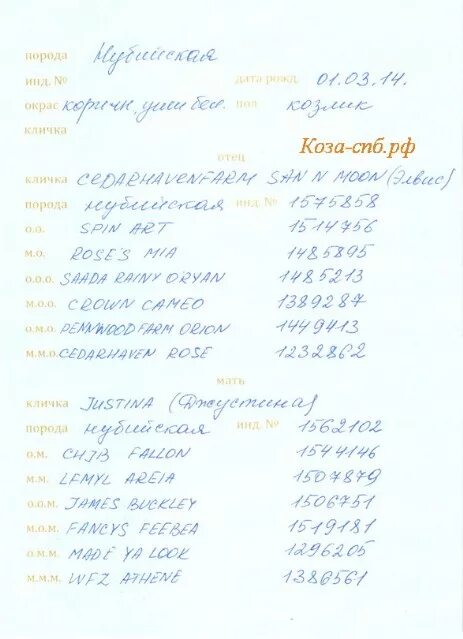 порода Нубийская
инд. № дата рожд. 01.03.14.
окрас коричн, уши бел. пол козлик
кличка
Коза-спб.рф
отец
кличка CEDARHAVENFARM SAN N MOON (Элвис)
порода нубийская инд. № 1575858
о.о. SPIN ART 1514756
м.о. ROSE'S MIA 1485895
о.о.о. SAADA RAINY ORYAN 1485213
м.о.о. CROWN CAMEO 1389287
о.м.о. PENNWOODFARM ORION 1449413
м.м.о. CEDARHAVEN ROSE 1232862
мать
кличка JUSTINA (Джустина)
порода нубийская инд. № 1562102
о.м. CHJB FALLON 1544146
м.м. LEMYL AREIA 1507879
о.о.м. JAMES BUCKLEY 1506751
м.о.м. FANCYS FEEBEA 1519181
о.м.м. MADE YA LOOK 1296205
м.м.м. WFZ ATHENE 1386561